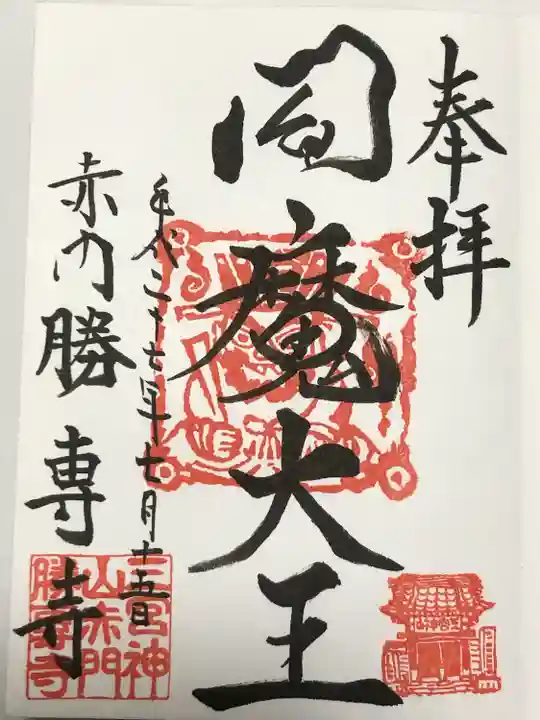 奉拝
閻魔大王
平成二十七年七月十五日
赤門勝専寺
三宮神
山赤門
勝専寺